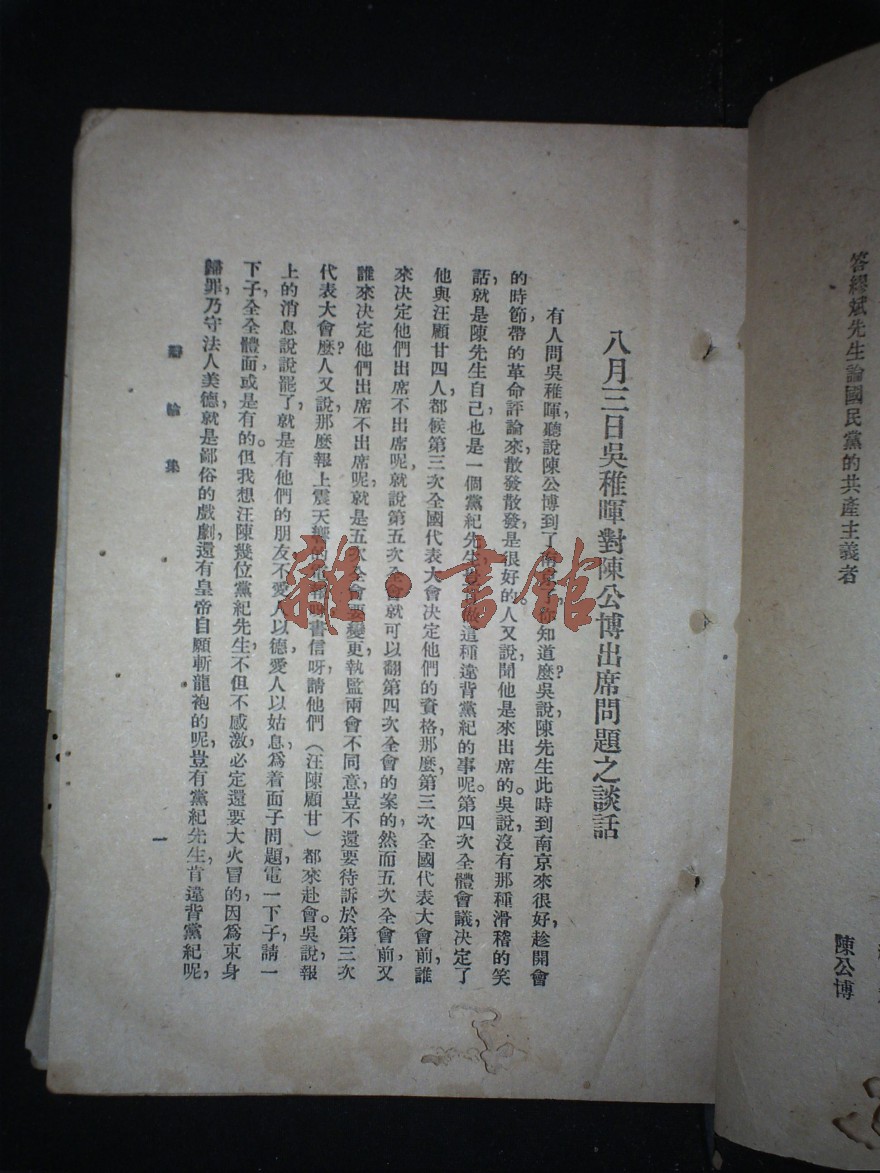 答繆斌先生論國民黨的共產主義者
陳公博
八月三日吳稚暉對陳公博出席問題之談話
有人問吳稚暉，聽說陳公博到了，你知道麼？吳說，陳先生此時到南京來很好，趁開會
的時節，帶的革命評論來，散發散發，是很好的。人又說，聞他是來出席的。吳說，沒有那種滑稽的笑
話，就是陳先生自己也是一個黨紀先生，這種違背黨紀的事呢。第四次全體會議，決定了
他與汪顧甘四人，都候第三次全國代表大會決定他們的資格，那麼，第三次全國代表大會前，誰
來決定他們出席不出席呢，就說第五次全會就可以翻第四次全會的案的，然而五次全會前，又
誰來決定他們出席不出席呢，就是五次全會要變更，執監兩會不同意，豈不還要待訴於第三次
代表大會麼？人又說，那麼報上震天響的書信呀，請他們（汪陳顧甘）都來赴會。吳說，報
上的消息說說罷了，就是有他們的朋友，不愛人以德，愛人以姑息，爲着面子問題，電一下子，請一
下子，全全體面，或是有的。但我想汪陳幾位黨紀先生，不但不感激，必定還要大火冒的，因爲束身
歸罪，乃守法人美德，就是鄙俗的戲劇，還有皇帝自願斬龍袍的呢，豈有黨紀先生，肯違背黨紀呢，
辯論集
一
雜·書館